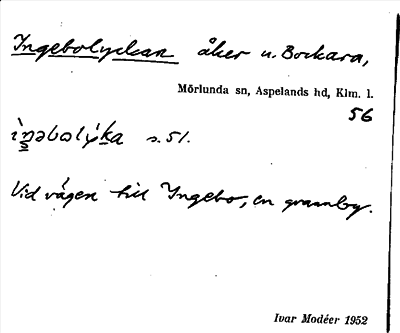 Ingebolyckan åker u. Bockara,
Mörlunda sn, Aspelands hd, Klm. l.
56
ìŋəbolýka s. 51.
Vid vägen till Ingebo, en grannby.
Ivar Modéer 1952